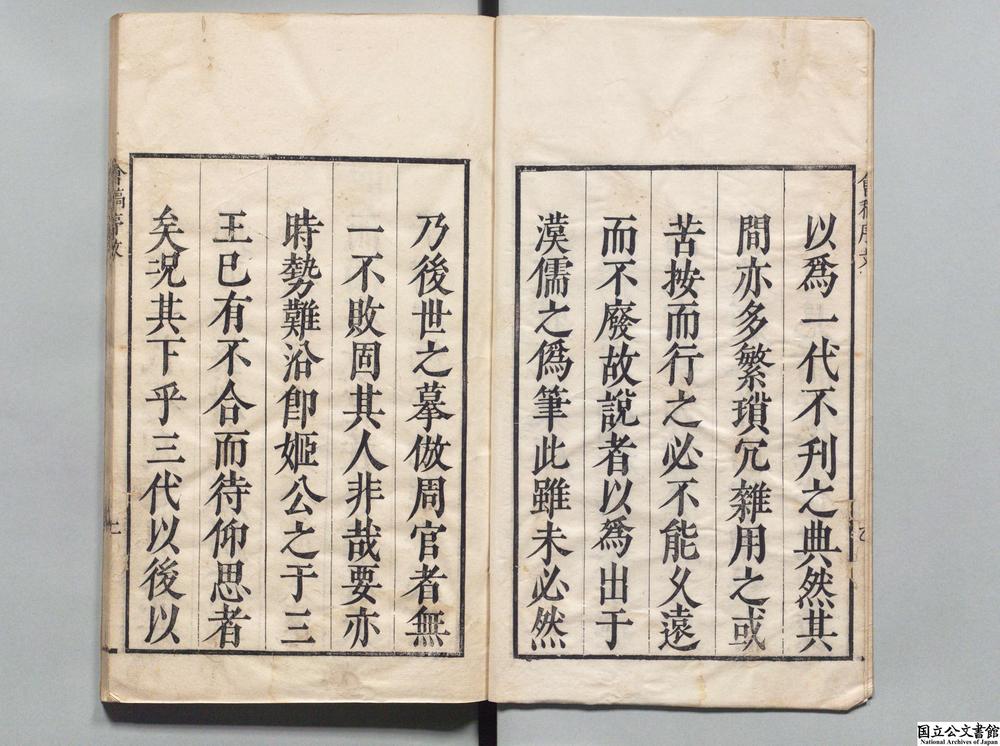 以爲一代不刋之典然其
間亦多繁瑣冗雜用之或
苦按而行之必不能久遠
而不廢故說者以爲出于
漢儒之僞筆此雖未必然
乃後世之摹倣周官者無
一不敗固其人非哉要亦
時勢難沿卽姬公之于三
王已有不合而待仰思者
矣况其下乎三代以後以
二
国立公文書館
National Archives of Japan